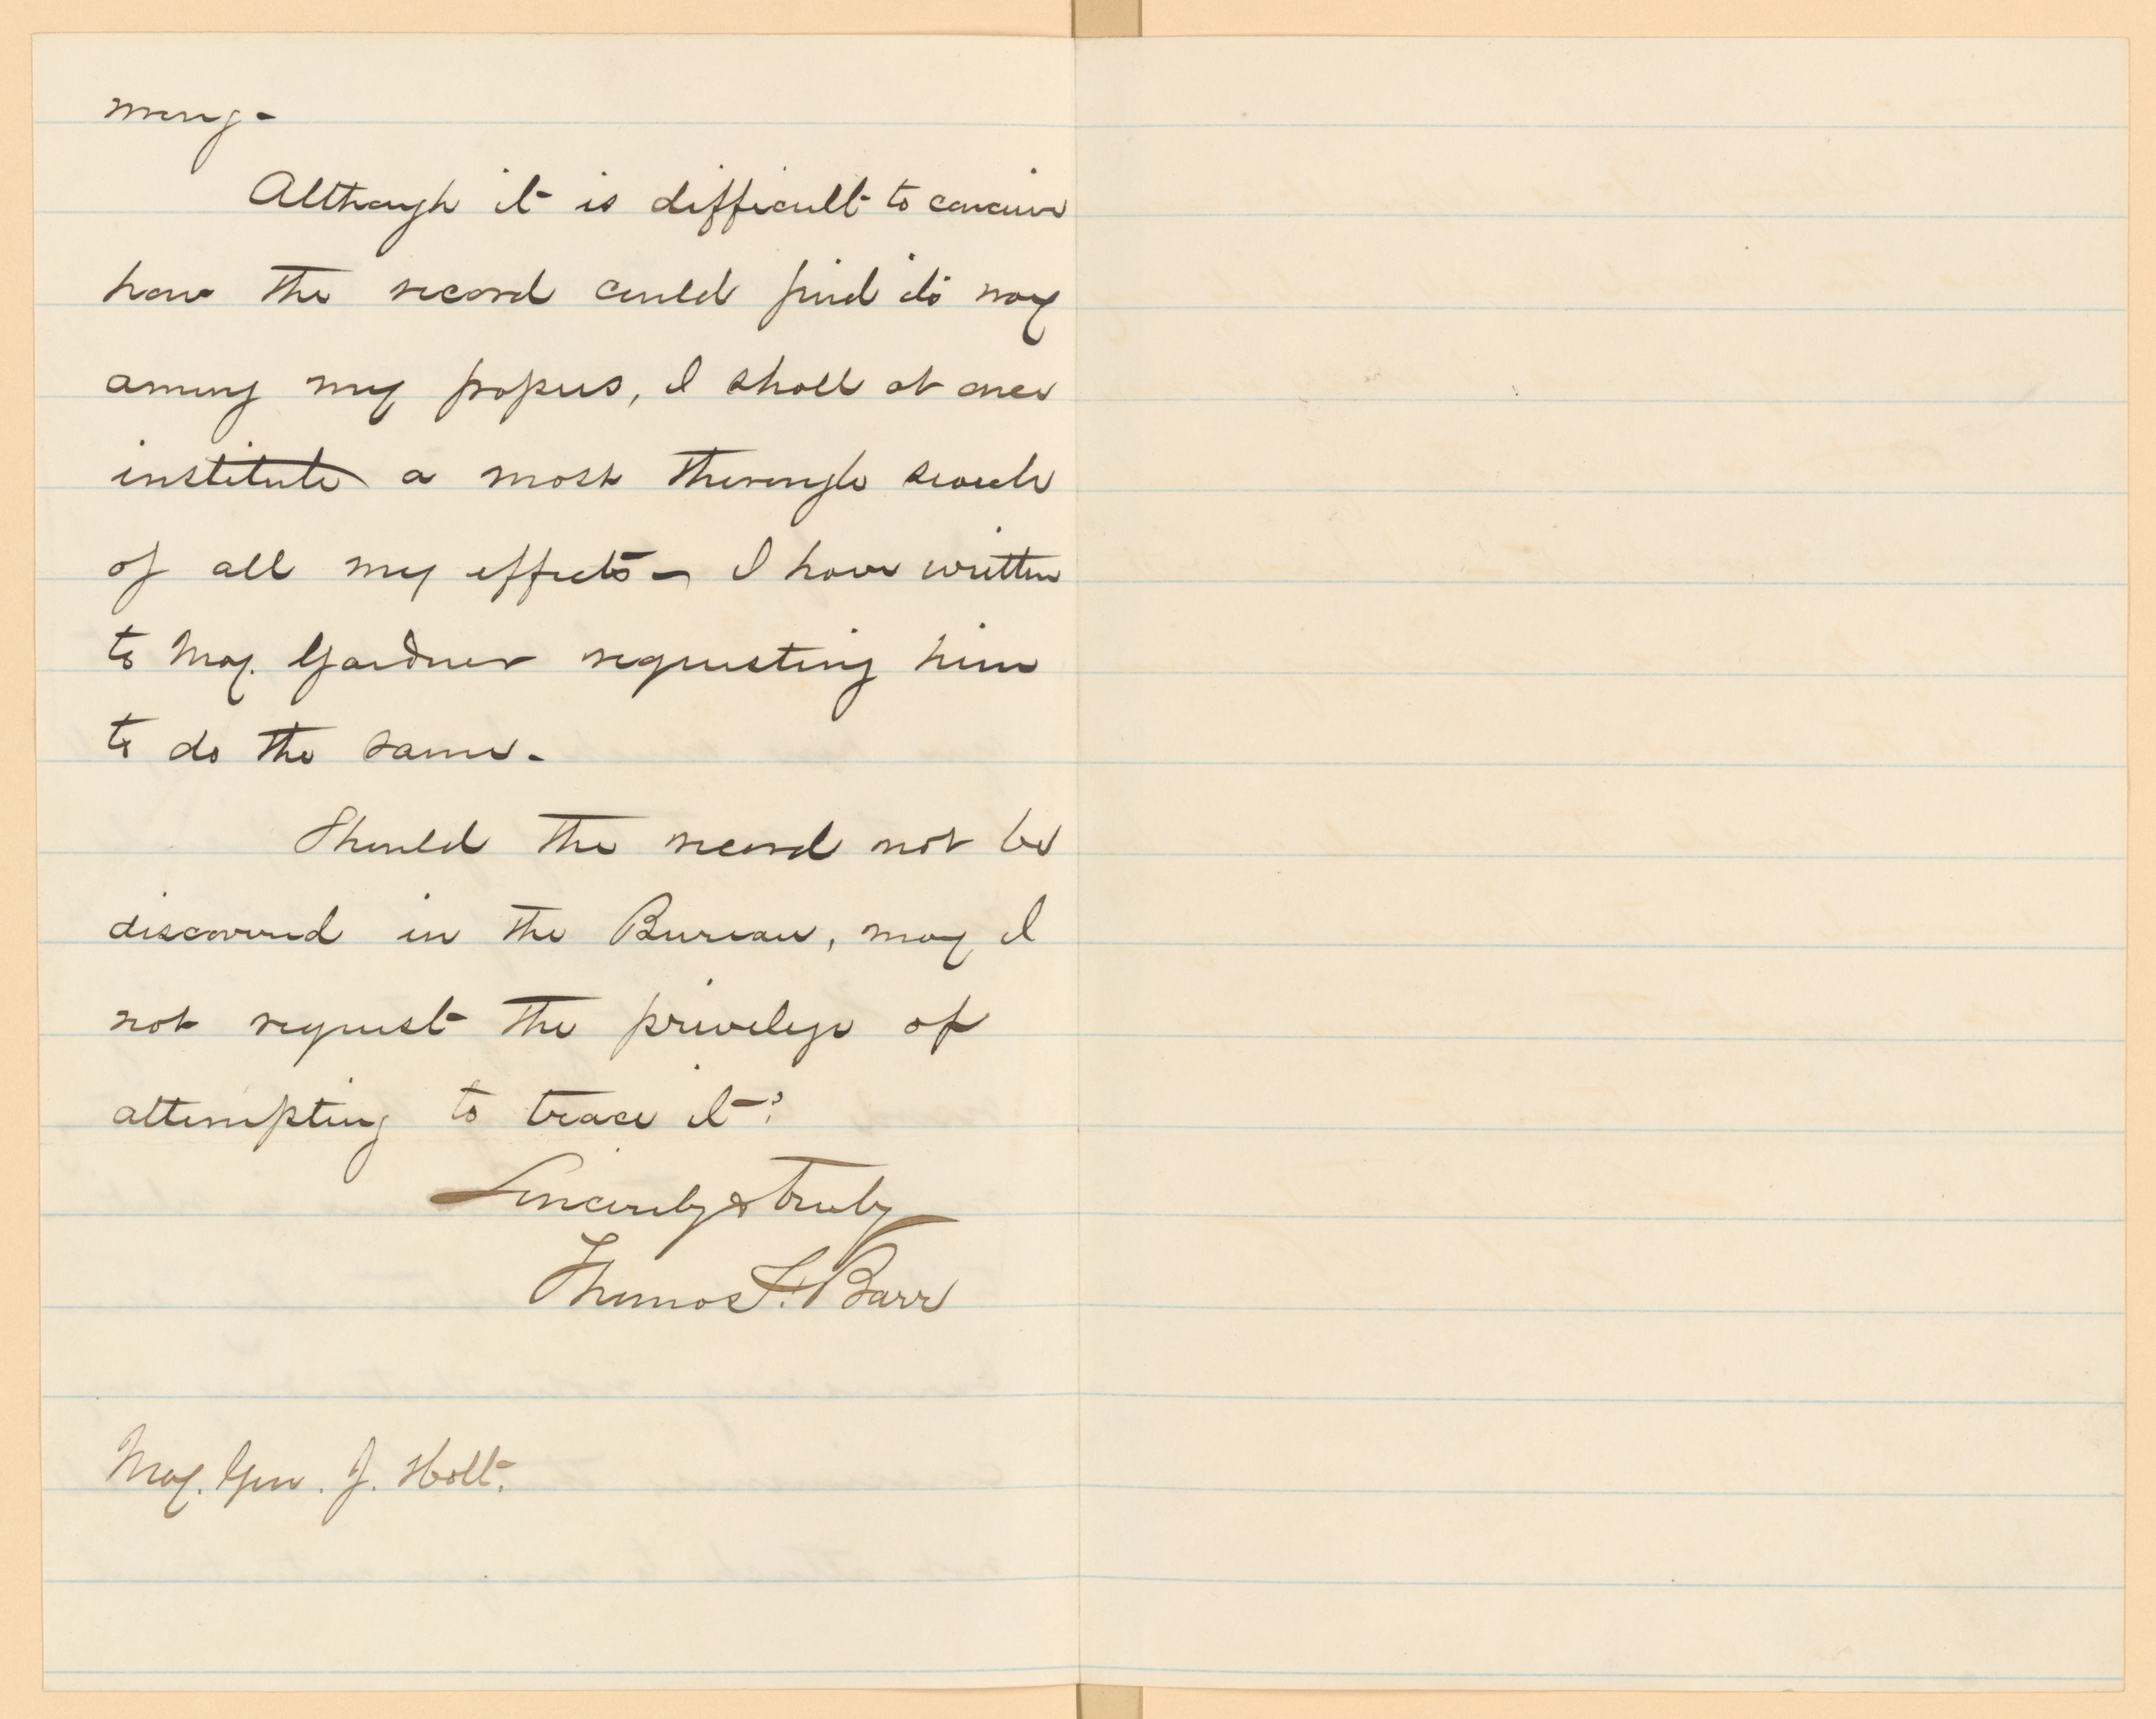 Although it is difficult to conceive
how the record could find its way
among my papers, I shall at once
institute a most thorough search
of all my effects - I have written
to Maj. Gardner requesting him
to do the same.
Should the record not be
discovered in the Bureau, may I
not request the privilege of
attempting to trace it?
Sincerely & truly
Thomas F. Barr
Maj. Gen. J. Holt.